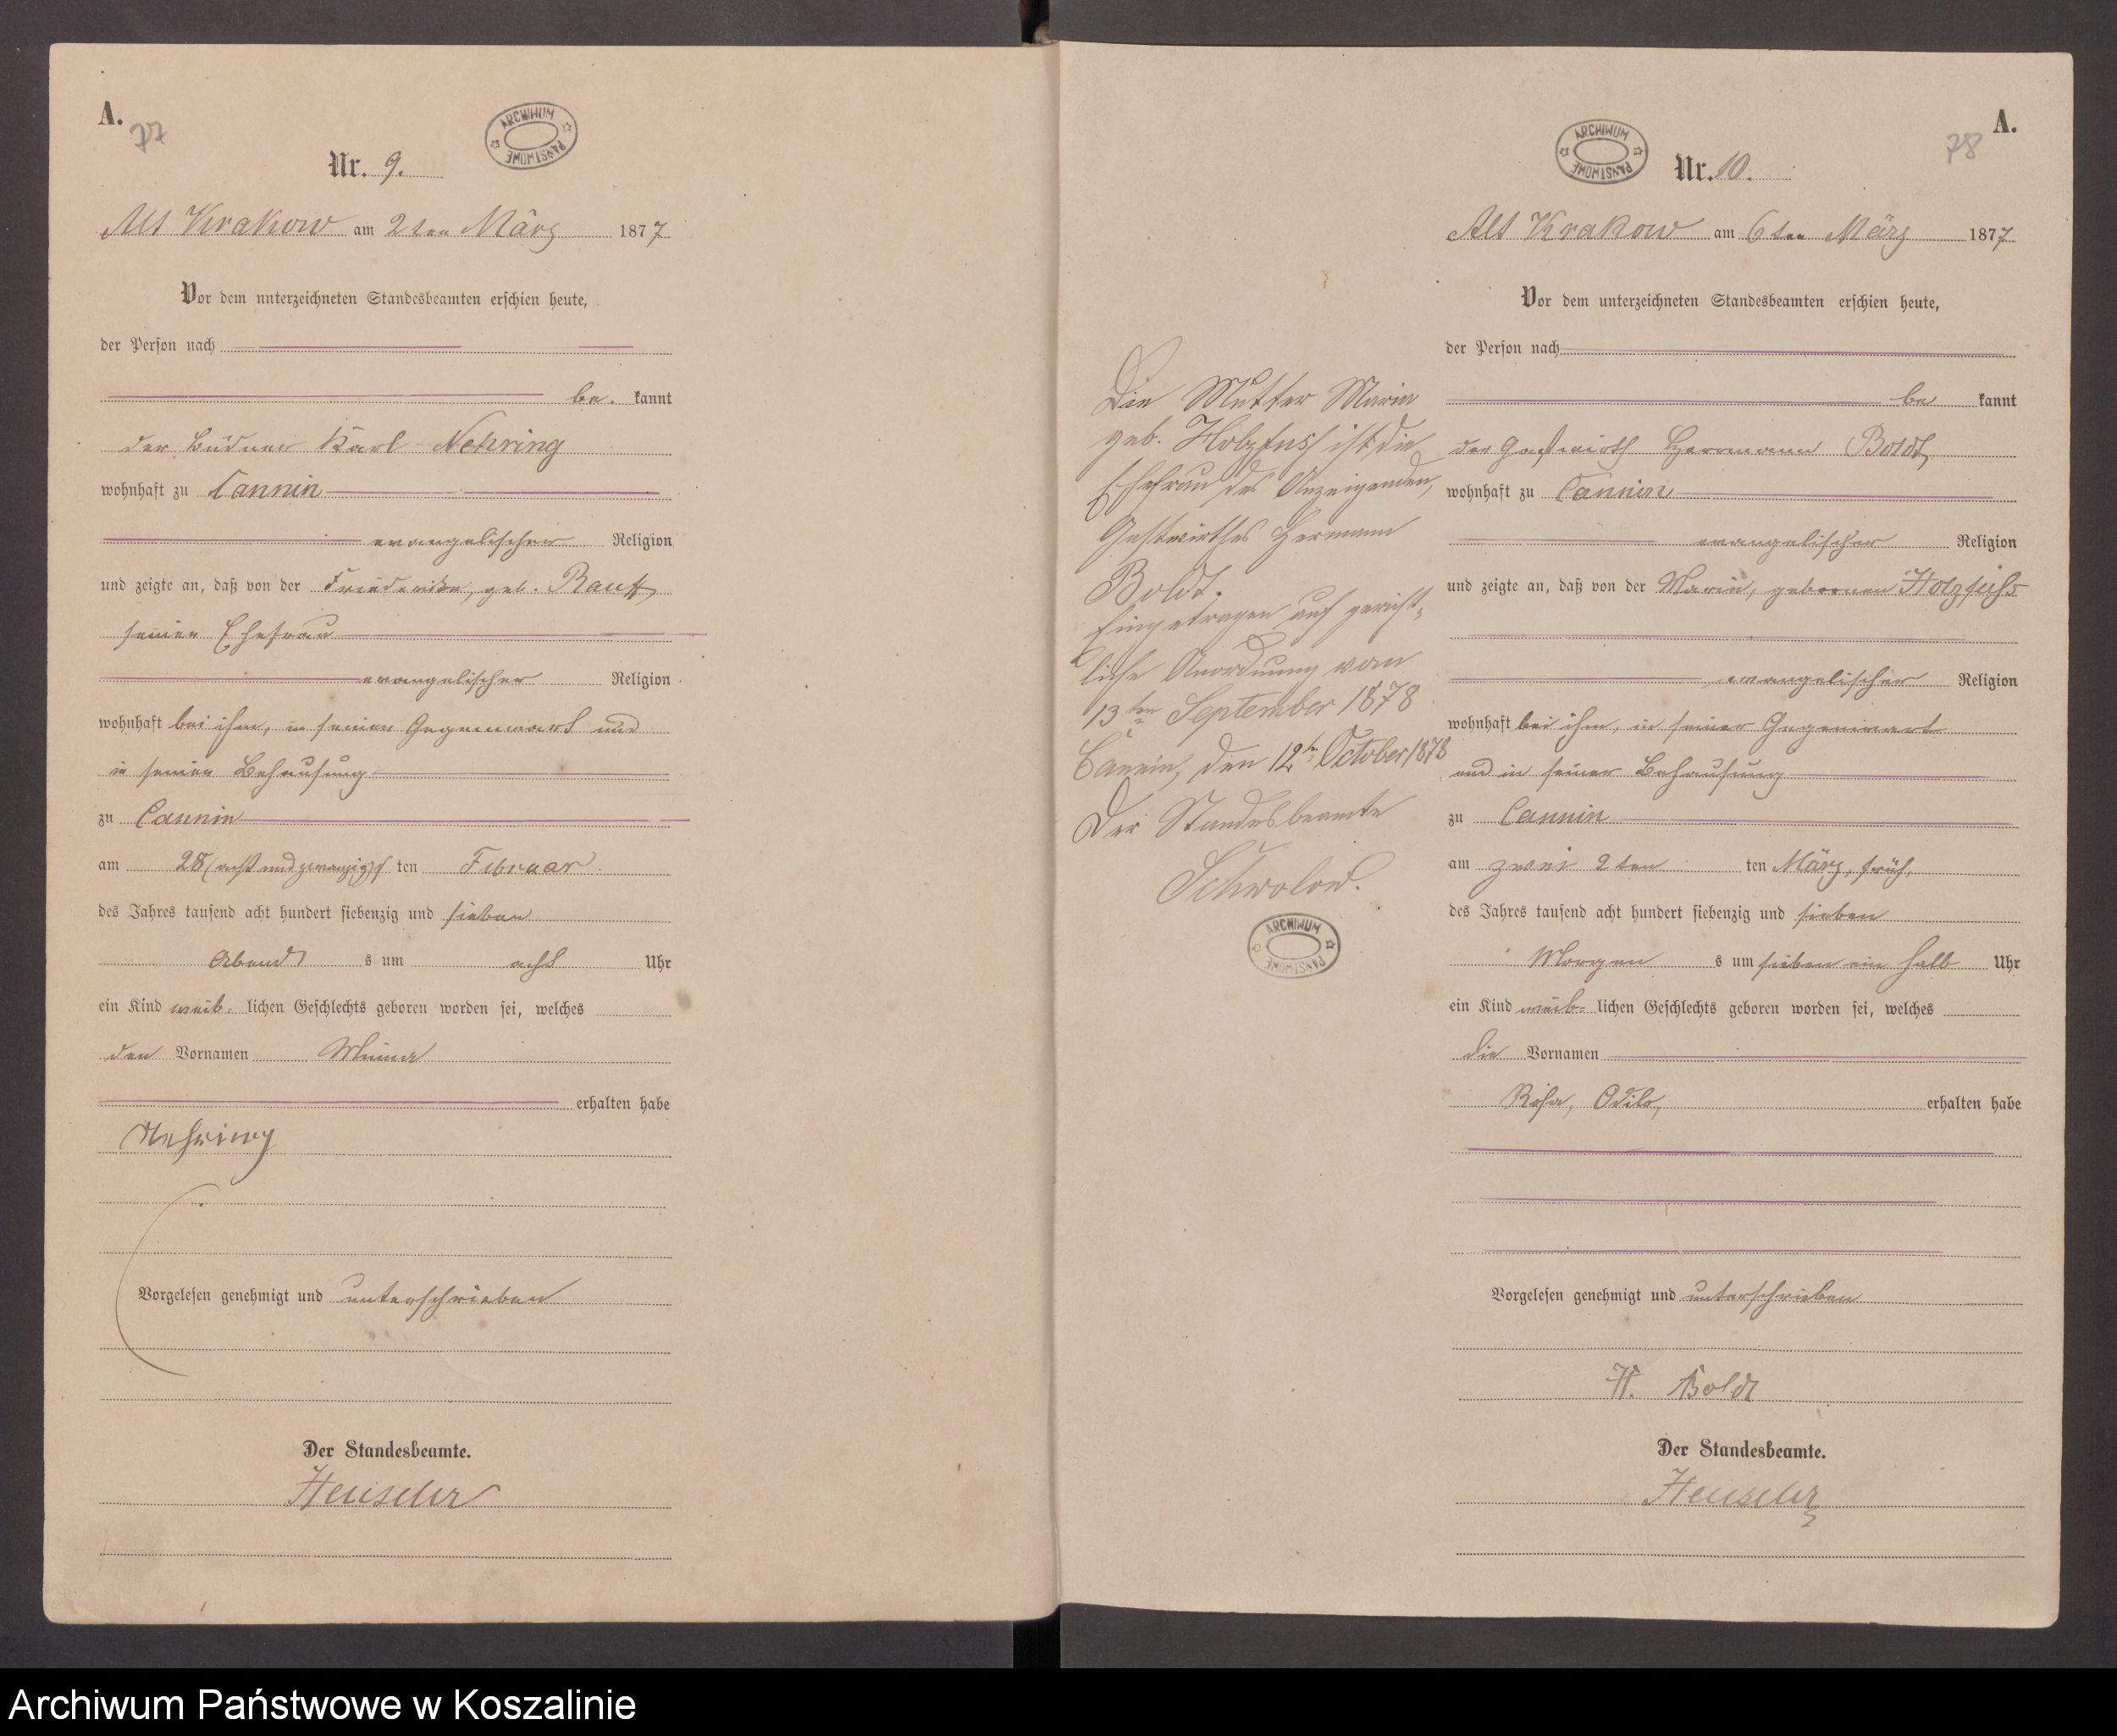 A.
77
ARCHIWUM PAŃSTWOWE
Nr. 9.
Alt Krakow am 2ten März 1877
Vor dem unterzeichneten Standesbeamten erschien heute,
der Person nach
be. kannt
der Büdner Karl Nehring
wohnhaft zu Cannin
evangelischer Religion
und zeigte an, daß von der Friederike, geb.
seiner Ehefrau
evangelischer Religion
wohnhaft bei ihm, in seiner Gegenwart und
in seiner Behausung
zu Cannin
am 28 (acht und zwanzig) ten Februar.
des Jahres tausend acht hundert siebenzig und sieben
Abend s um acht Uhr
ein Kind weib. lichen Geschlechts geboren worden sei, welches
den Vornamen Minna
erhalten habe
Nehring
Vorgelesen genehmigt und unterschrieben
Der Standesbeamte.
Die Mutter Marie
geb. Holzfuss ist die
Ehefrau des Anzeigenden,
Gastwirthes Hermann
Boldt.
Eingetragen auf gericht-
liche Anordnung vom
13ten September 1878
Cannin, den 12ten October 1878
Der Standesbeamte
Schwolow.
ARCHIWUM PAŃSTWOWE
A.
78
ARCHIWUM PAŃSTWOWE
Nr. 10.
Alt Krakow am 6ten März 1877
Vor dem unterzeichneten Standesbeamten erschien heute,
der Person nach
be kannt
der Gastwirth Herrmann Boldt,
wohnhaft zu Cannin
evangelischer Religion
und zeigte an, daß von der Marie, gebornen Holzfuhs
evangelischer Religion
wohnhaft bei ihm, in seiner Gegenwart
und in seiner Behausung
zu Cannin
am zwei 2ten ten März, früh,
des Jahres tausend acht hundert siebenzig und sieben
Morgen s um sieben ein halb Uhr
ein Kind weib- lichen Geschlechts geboren worden sei, welches
die Vornamen
Rosa, erhalten habe
Vorgelesen genehmigt und unterschrieben
H. Boldt
Der Standesbeamte.
Archiwum Państwowe w Koszalinie